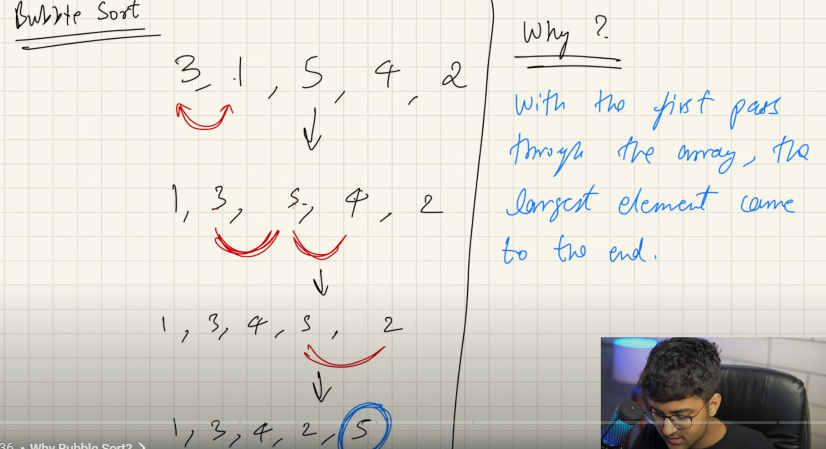 Bubble Sort
3, 1, 5, 4, 2
1, 3, 5, 4, 2
1, 3, 4, 5, 2
1, 3, 4, 2, 5
Why ?
With the first pass
through the array, the
largest element came
to the end.
36 • Why Bubble Sort? >